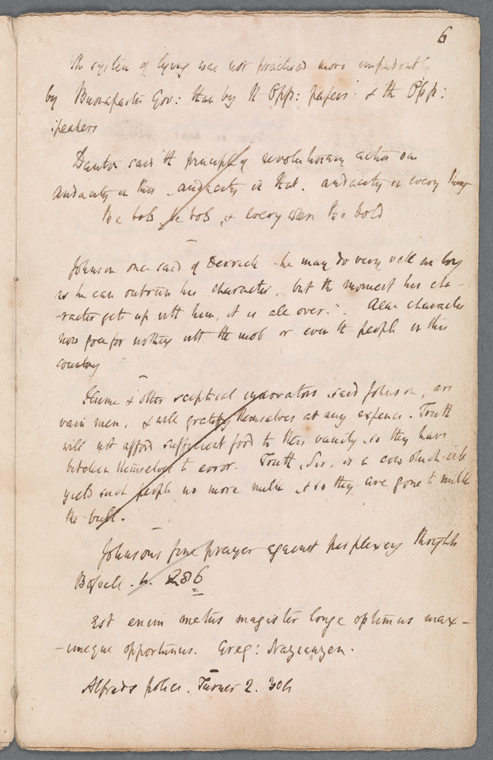 6
The system of lying was not practised more impudently
by Buonaparte's Gov: than by the Opp: papers & the Opp:
speakers
Danton said the principle of revolutionary action was
audacity in this. audacity in that. audacity in every thing
be bold be bold, & every where be bold
Johnson once said of Derrick - he may do very well as long
as he can outrun his character, but the moment his cha-
-racter gets up with him, it is all over.". Alas character
now goes for nothing with the mob or even the people in this
country
Hume & other sceptical innovators, said Johnson, are
vain men, & will gratify themselves at any expence. Truth
will not afford sufficient food to their vanity, so they have
betaken themselves to error. Truth, Sir, is a cow which will
yield such people no more milk & so they are gone to milk
the bull.
Johnsons fine prayer against perplexing thoughts
Boswell. 4. 286
Est enim metus magister longe optimus max-
-imeque opportunus. Greg: Nazianzen.
Alfreds police. Turner 2. 306